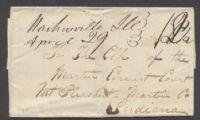 Nashville Ills
April 29
To The Clk of the
Martin Circuit Court
Mt Pleasant Martin Co
Indiana